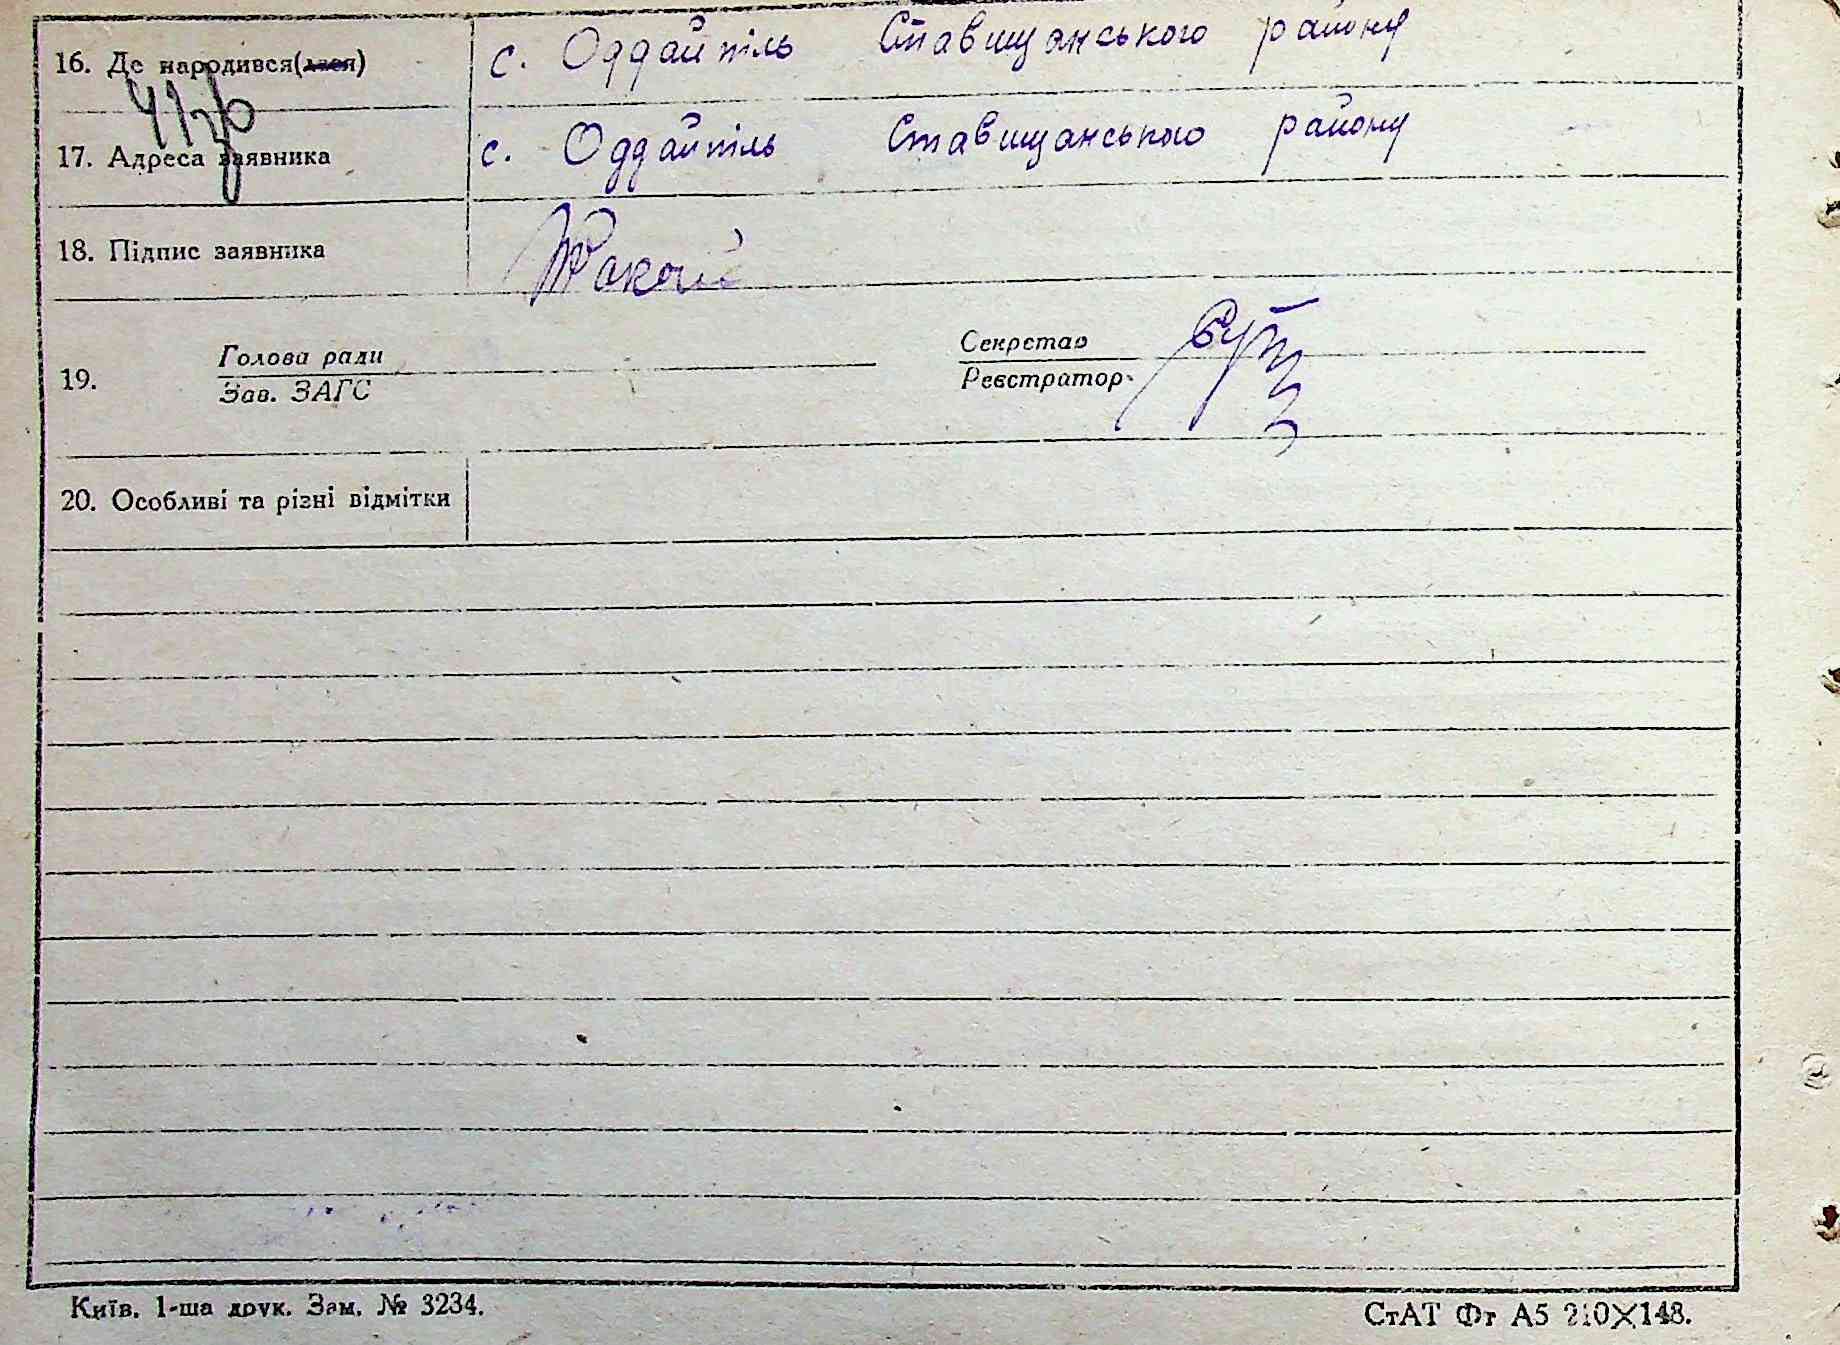 16. Де народився(лася) с. Оддайпіль Ставищанського району
17. Адреса заявника с. Оддайпіль Ставищанського району
18. Підпис заявника
Голова ради Секретар
19.
Зав. ЗАГС Реєстратор
20. Особливі та різні відмітки
Київ. 1-ша друк. Зам. № 3234. СтАТ Фт А5 210×148.